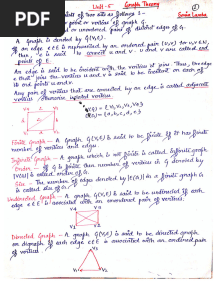 PDF
Unit-5 Graph Theory
of two sets as follows :-
points or vertices of graph G.
or unordered pairs of distinct edges of G.
A graph is denoted by G(V,E).
If an edge e∈E is represented by an ordered pair (u,v) for u,v∈V,
then 'e' is said to connect u and v. u and v are called end
points of E.
An edge is said to be incident with the vertices it joins. Thus, the edge
e that join the vertices u and v is said to be incident on each of
its end points u and v.
Any pair of vertices that are connected by an edge is called adjacent
vertices otherwise isolated vertices.
V(G) = {V1,V2,V3,V4}
E(G) = {a,b,c,d,e}
Finite Graph - A graph G(V,E) is said to be finite if it has finite
number of vertices and edges.
Infinite Graph - A graph which is not finite is called infinite graph
Order - If G is finite then number of vertices in G denoted by
|V(G)| is called order of G.
Size - The number of edges denoted by |E(G)| in a finite graph G
is called size of G.
Undirected Graph - A graph G(V,E) is said to be undirected if each
edge e∈E is associated with an unordered pair of vertices.
Directed Graph - A graph G(V,E) is said to be directed graph
or digraph if each edge e∈E is associated with an ordered pair
of vertices